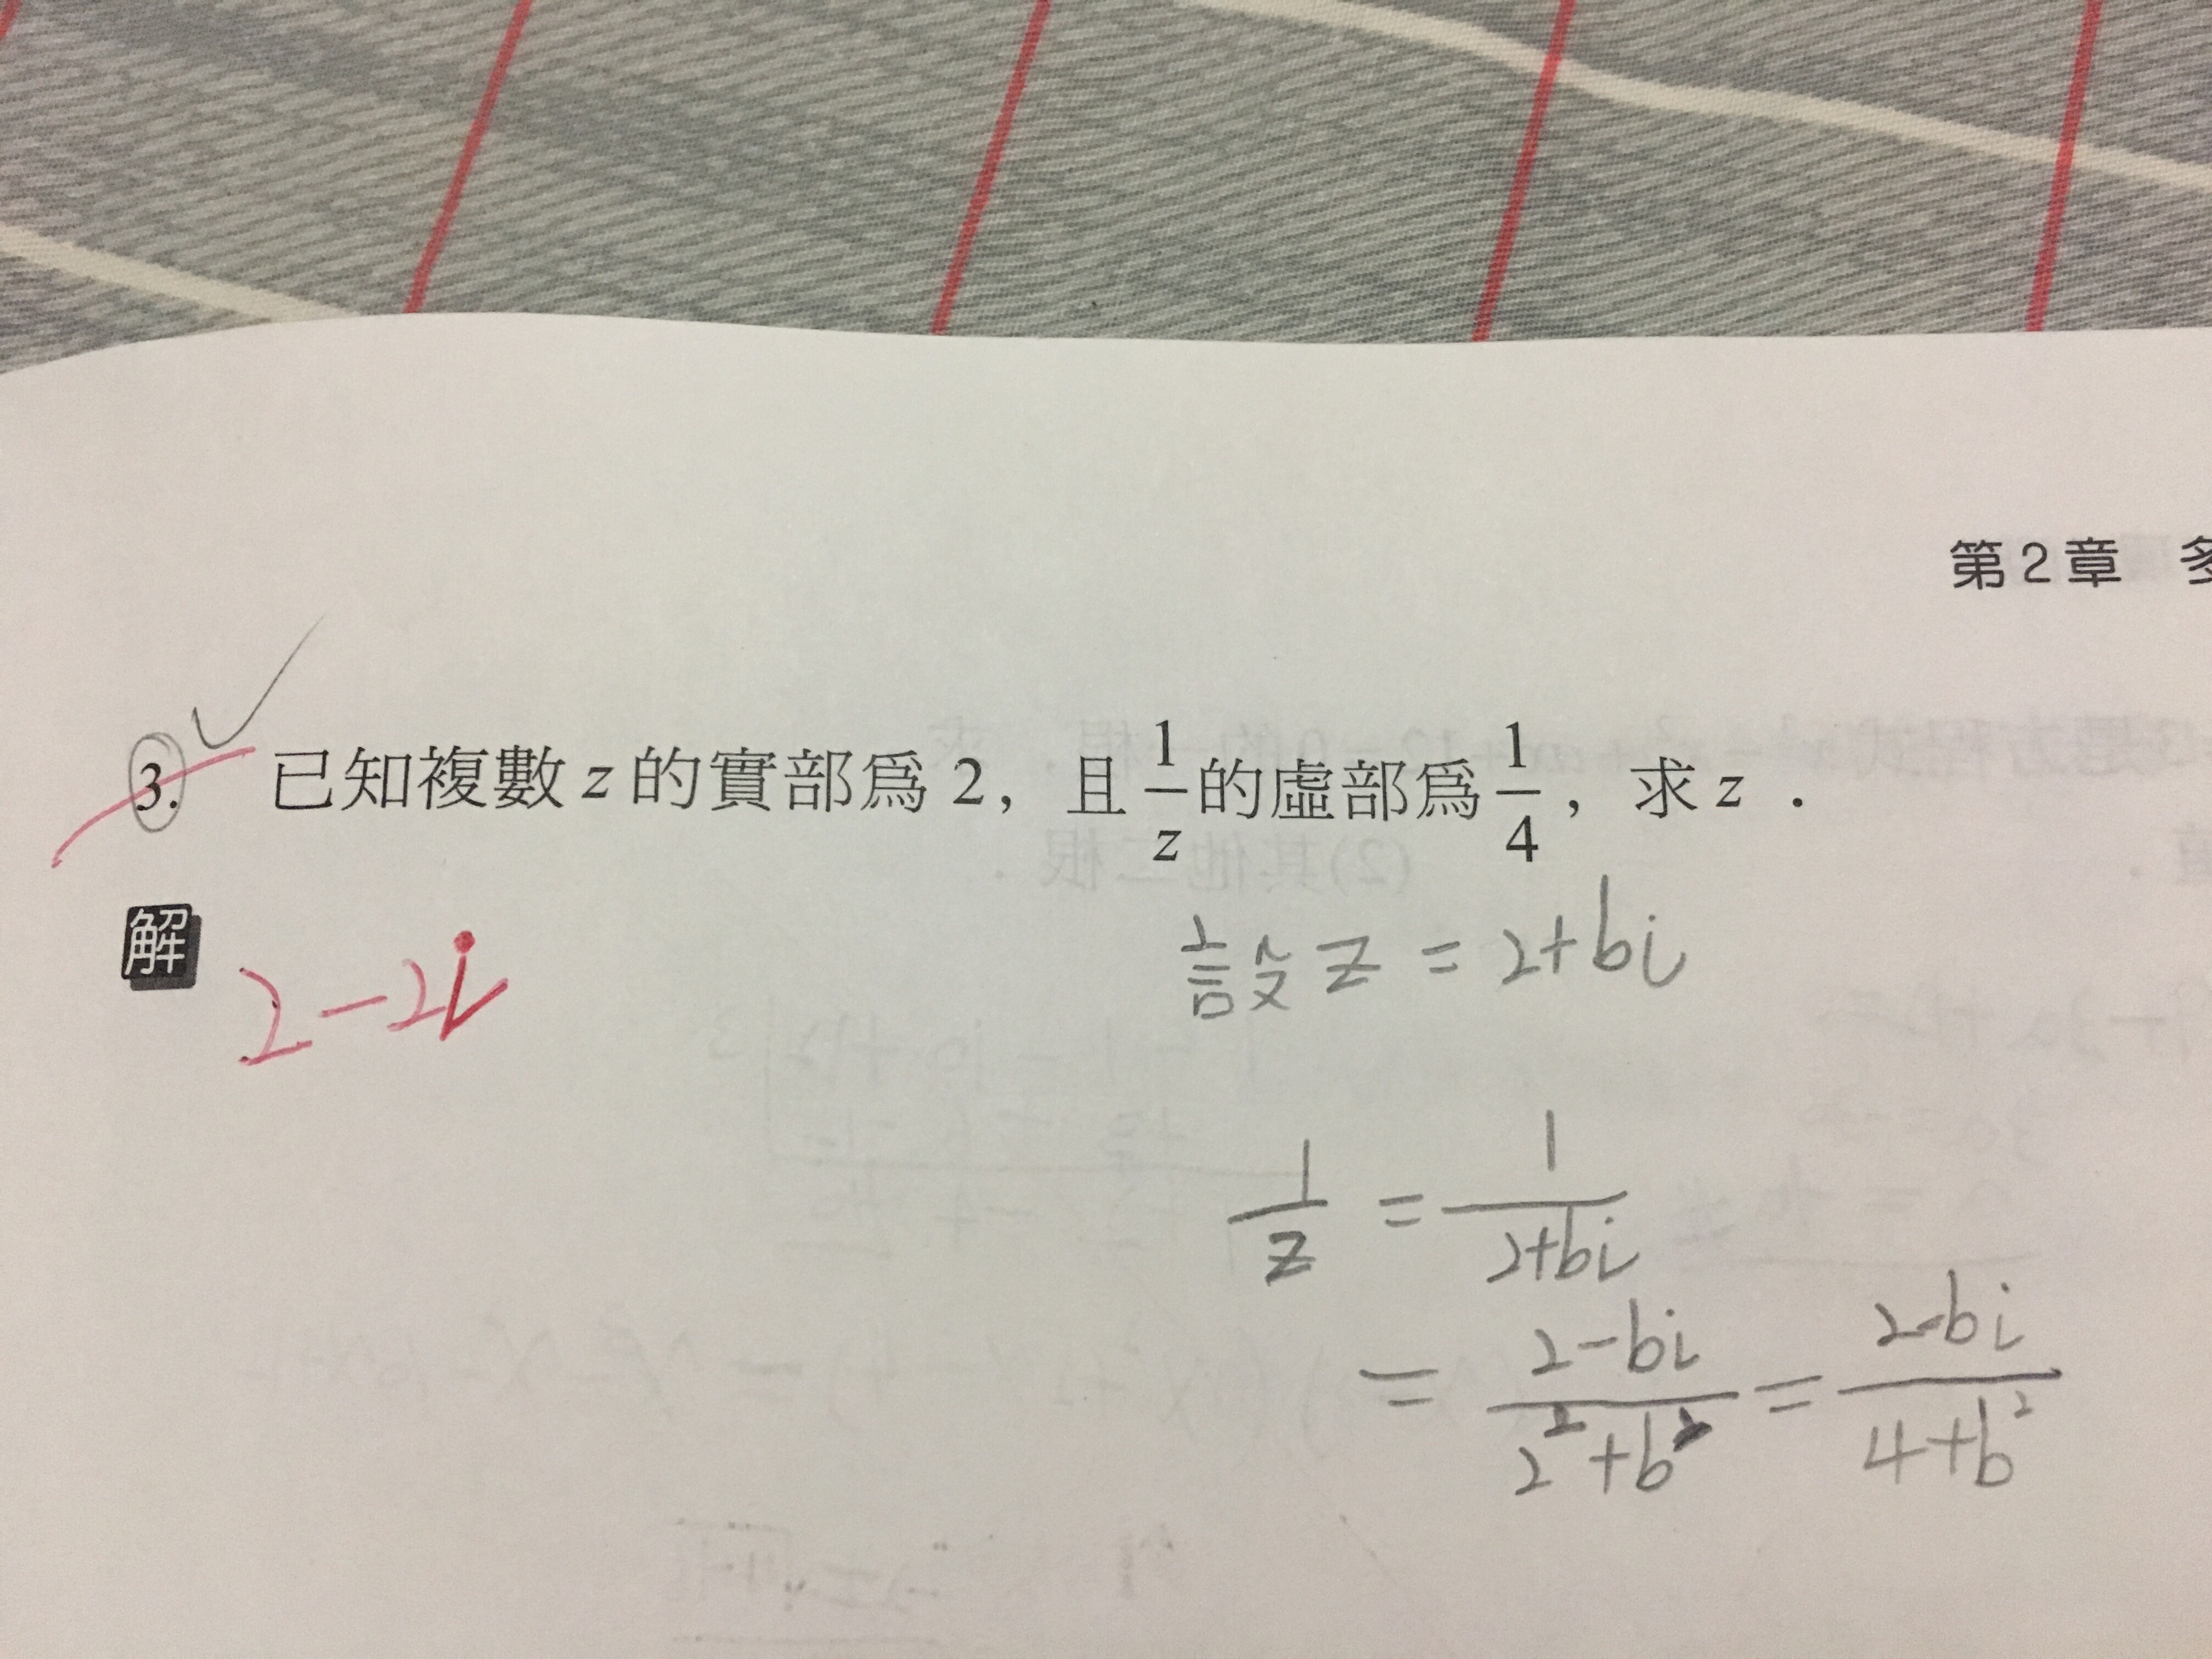 第2章
3. 已知複數 z 的實部爲 2，且 1/z 的虛部爲 1/4，求 z．
解
2-2i
設 z = 2+bi
1/z = 1/(2+bi)
= (2-bi)/(2²+b²) = (2-bi)/(4+b²)